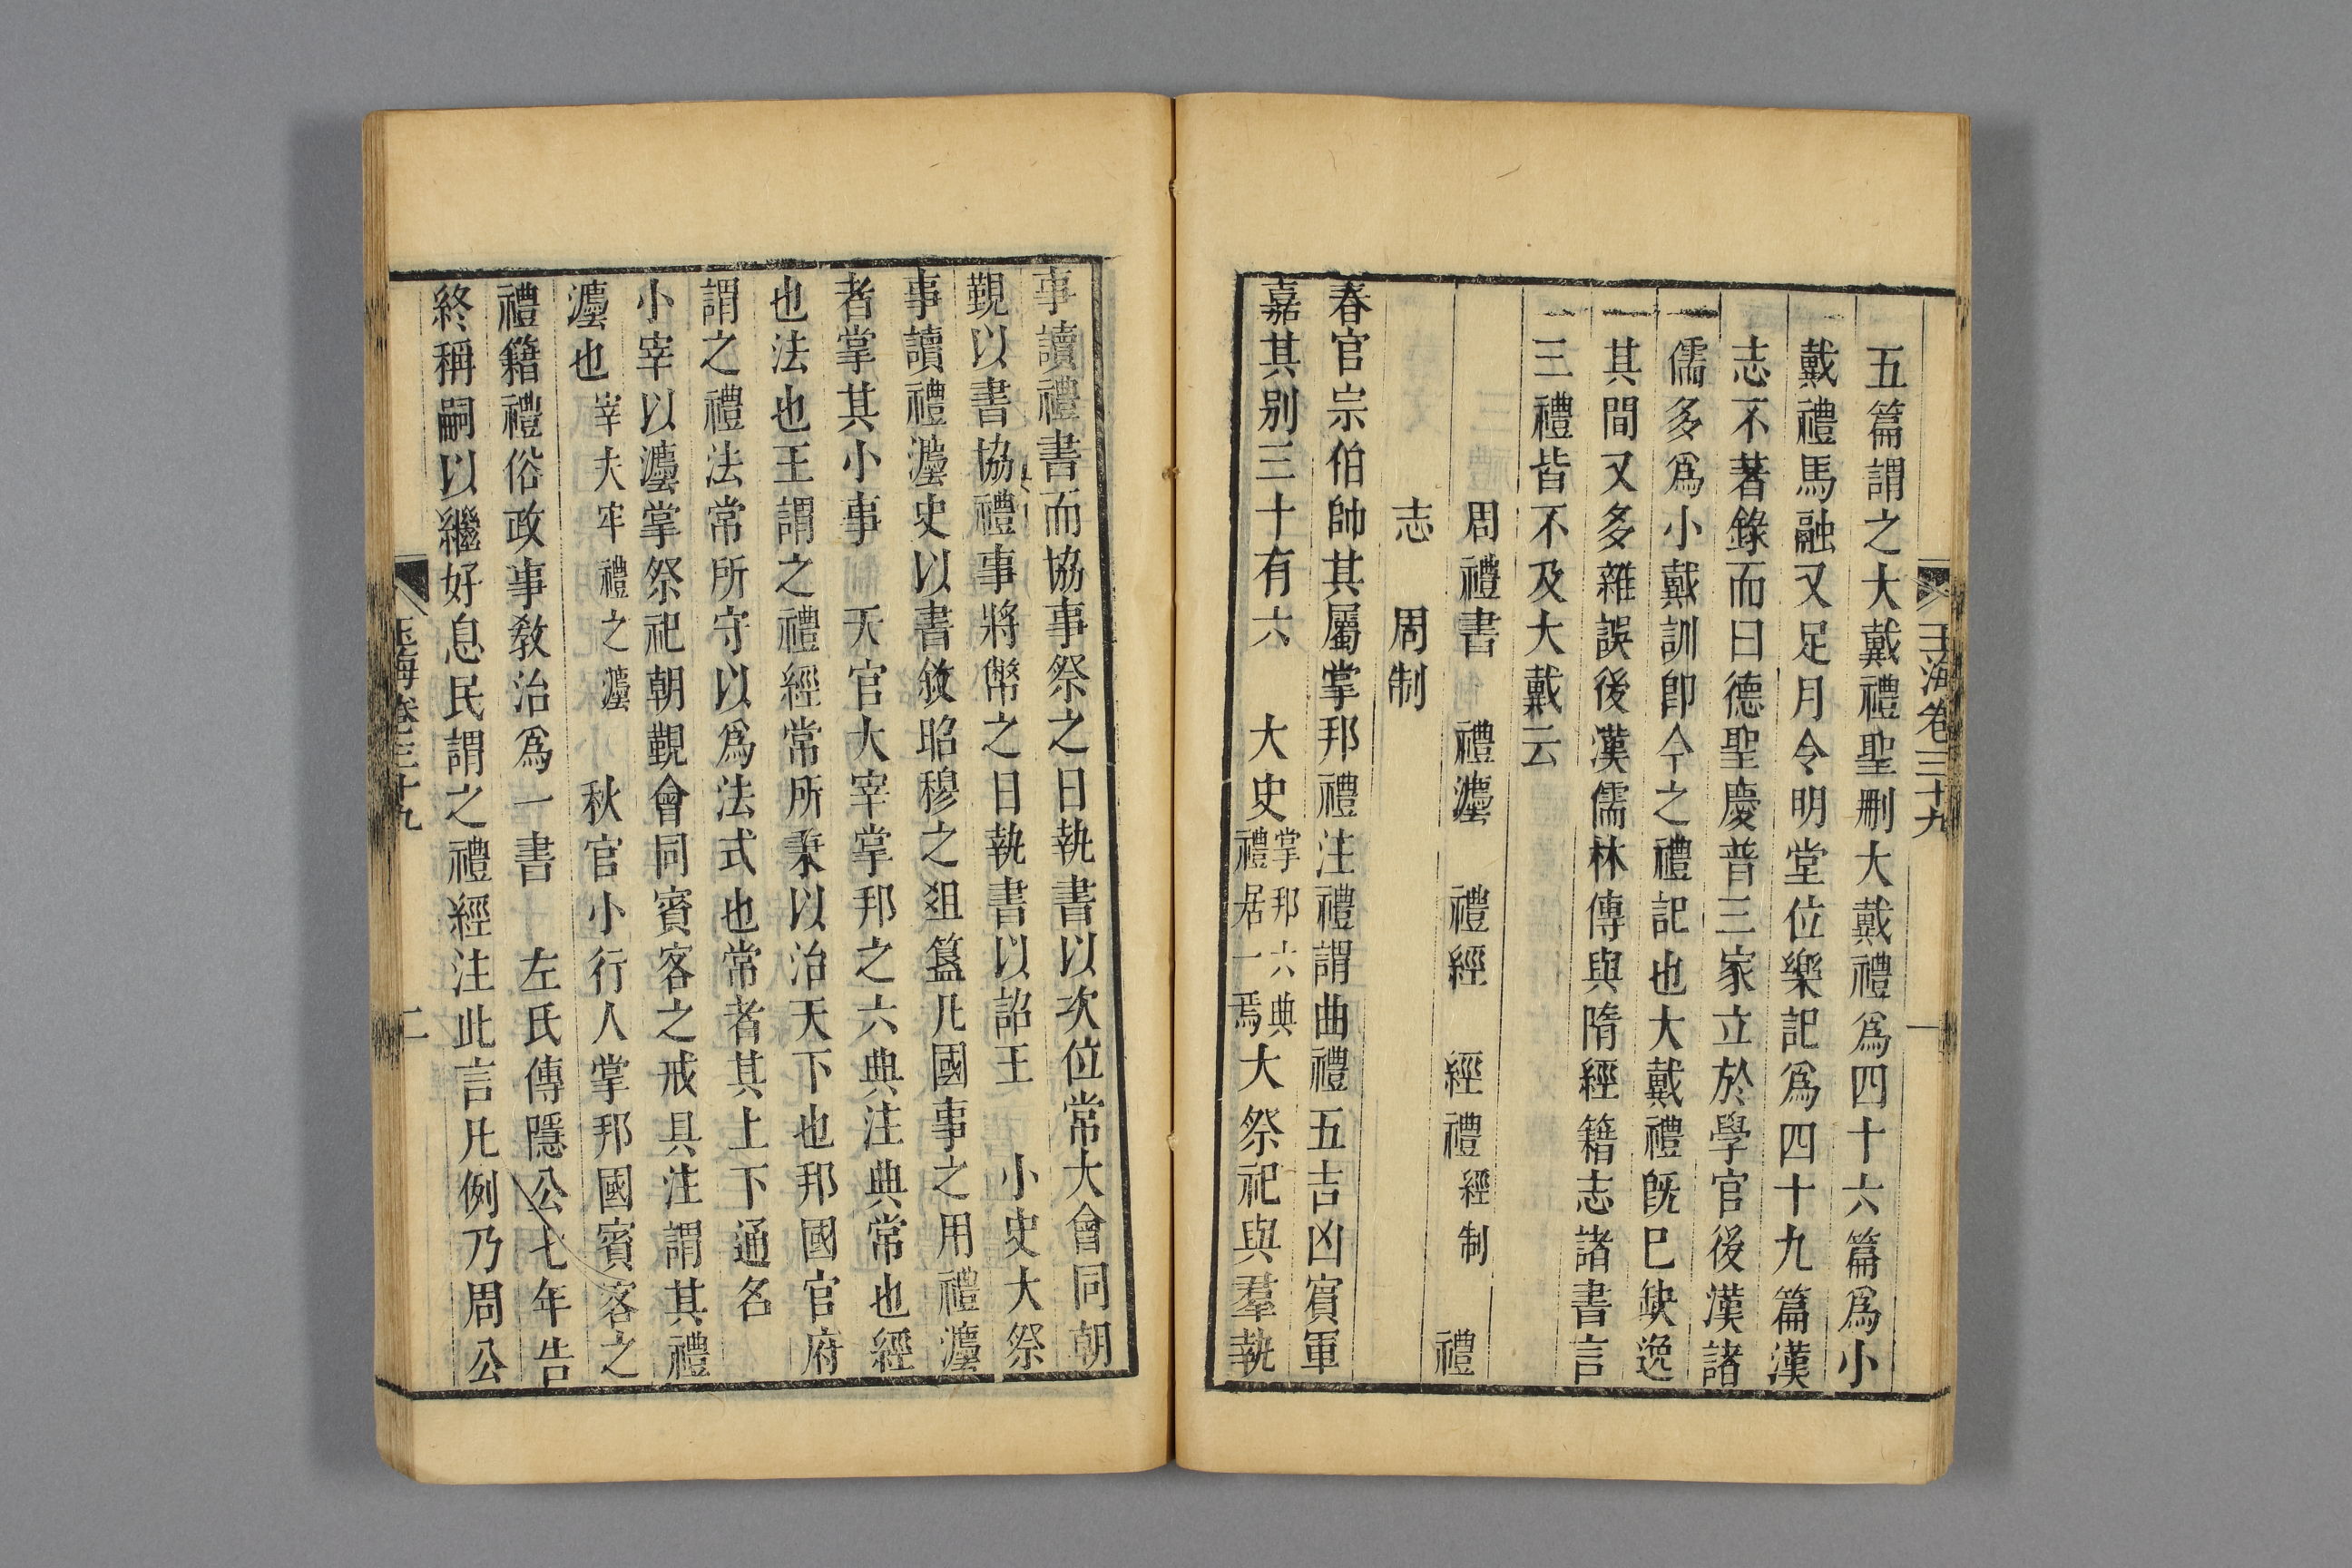 玉海卷三十九 一
五篇謂之大戴禮聖刪大戴禮爲四十六篇爲小
戴禮馬融又足月令明堂位樂記爲四十九篇漢
志不著錄而曰德聖慶普三家立於學官後漢諸
儒多爲小戴訓卽今之禮記也大戴禮旣巳缺逸
其間又多雜誤後漢儒林傳與隋經籍志諸書言
三禮皆不及大戴云
周禮書 禮灋 禮經 經禮 經制 禮
志 周制
春官宗伯帥其屬掌邦禮注禮謂曲禮五吉凶賓軍
嘉其别三十有六 大史掌邦六典禮居一焉大祭祀與羣執
事讀禮書而協事祭之日執書以次位常大會同朝
覲以書協禮事將幣之日執書以詔王 小史大祭
事讀禮灋史以書敘昭穆之俎簋凡國事之用禮灋
者掌其小事 天官大宰掌邦之六典注典常也經
也法也王謂之禮經常所秉以治天下也邦國官府
謂之禮法常所守以爲法式也常者其上下通名
小宰以灋掌祭祀朝覲會同賓客之戒具注謂其禮
灋也宰夫牢禮之灋 秋官小行人掌邦國賓客之
禮籍禮俗政事教治爲一書 左氏傳隱公七年告
終稱嗣以繼好息民謂之禮經注此言凡例乃周公
玉海卷三十九 二